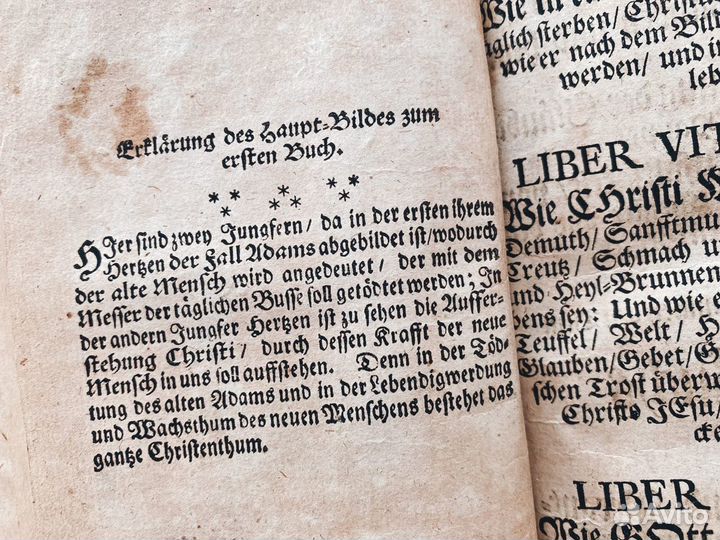 Erklärung des Haupt-Bildes zum
ersten Buch.
* * * * * *
HIer sind zwey Jungfern/ da in der ersten ihrem
Hertzen der Fall Adams abgebildet ist/ wodurch
der alte Mensch wird angedeutet/ der mit dem
Messer der täglichen Busse soll getödtet werden; In
der andern Jungfer Hertzen ist zu sehen die Auffer-
stehung Christi/ durch dessen Krafft der neue
Mensch in uns soll auffstehen. Denn in der Töd-
tung des alten Adams und in der Lebendigwerdung
und Wachsthum des neuen Menschens bestehet das
gantze Christenthum.
Wie in
sterben/ Christ
wie er nach dem Bild
werden/ und i
leb
LIBER VIT
Wie CHristi
Demuth/ Sanfftmu
Creutz/ Schmach u
und Heyl-Brunnen
sey: Und wie e
Teuffel/ Welt/ H
Glauben/ Gebet/ G
schen Trost überw
Christo JEsu/
cke
LIBER
Wie GOtt
Avito